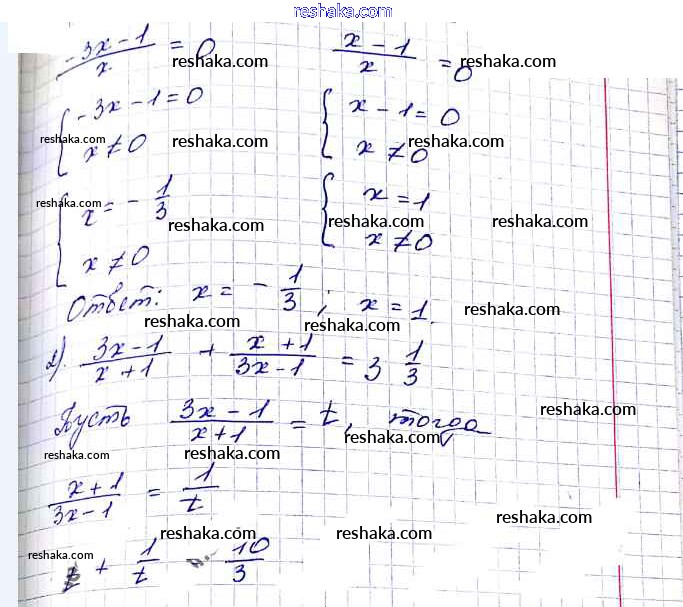 reshaka.com
(-3x-1)/x = 0 reshaka.com (x-1)/x = 0 reshaka.com
{ -3x-1=0 { x-1=0
x≠0 reshaka.com x≠0 reshaka.com
{ x = -1/3 reshaka.com reshaka.com { x=1 reshaka.com reshaka.com
x≠0 x≠0
Ответ: x = -1/3; x = 1. reshaka.com
reshaka.com reshaka.com
2). (3x-1)/(x+1) + (x+1)/(3x-1) = 3 1/3
Пусть (3x-1)/(x+1) = t, тогда reshaka.com
reshaka.com reshaka.com reshaka.com
(x+1)/(3x-1) = 1/t
reshaka.com reshaka.com reshaka.com
reshaka.com t + 1/t = 10/3